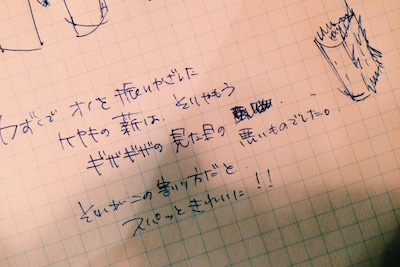 わずくで オノを振りかざした
ケヤキの薪は、そりゃもう
ギザギザの見た目の 悪いものでした。
それがこの割り方だと
スパッときれいに!!